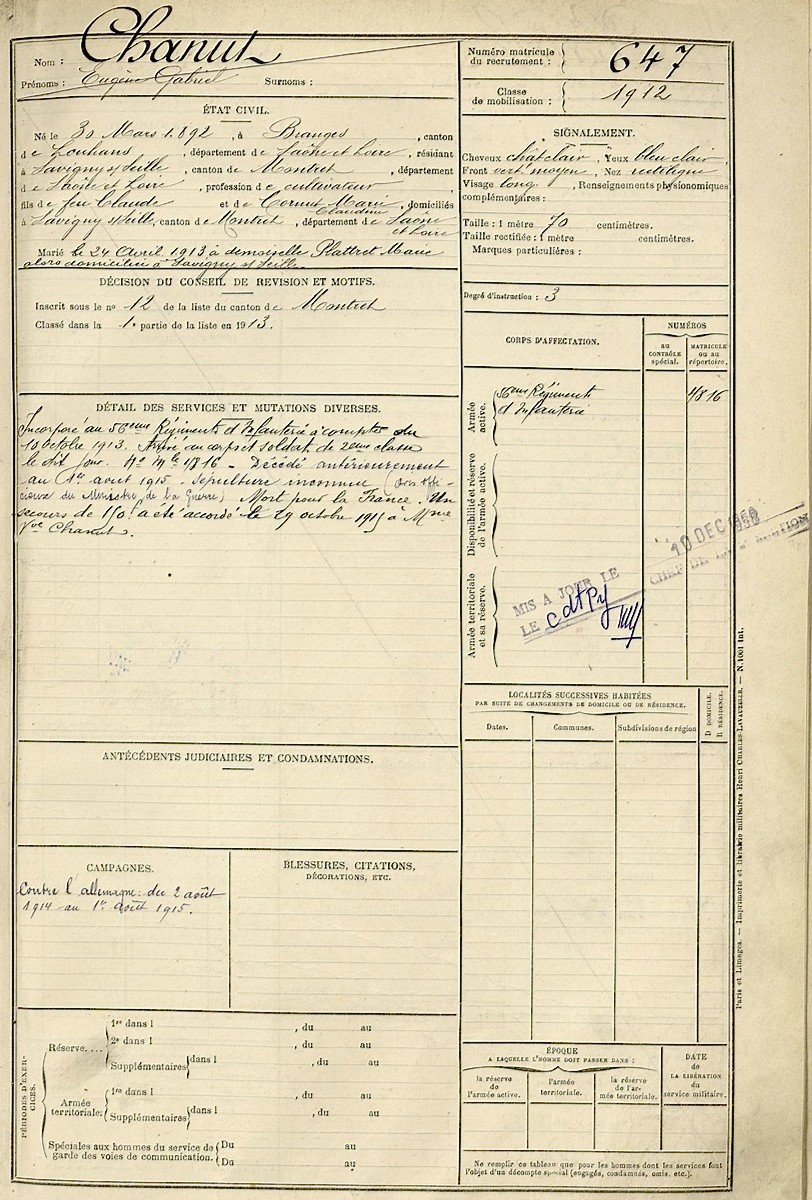 Nom : Chanut
Prénoms : Eugène Gabriel Surnoms :
Numéro matricule du recrutement : 647
Classe de mobilisation : 1912
ÉTAT CIVIL.
Né le 30 Mars 1892, à Branges, canton
de Louhans, département de Saône et Loire, résidant
à Savigny s/ Seille, canton de Montret, département
de Saône et Loire, profession de cultivateur
fils de feu Claude et de Cornut Marie Claudine, domiciliés
à Savigny s/ Seille, canton de Montret, département de Saône et Loire
Marié le 24 Avril 1913 à demoiselle Plattret Marie
alors domiciliée à Savigny s/ Seille
SIGNALEMENT.
Cheveux chât clair, Yeux bleu clair,
Front vert moyen, Nez rectiligne
Visage long, Renseignements physionomiques
complémentaires :
Taille : 1 mètre 70 centimètres.
Taille rectifiée : 1 mètre centimètres.
Marques particulières :
Degré d'instruction : 3
DÉCISION DU CONSEIL DE REVISION ET MOTIFS.
Inscrit sous le no 12 de la liste du canton de Montret
Classé dans la 1e partie de la liste en 1913.
DÉTAIL DES SERVICES ET MUTATIONS DIVERSES.
Incorporé au 56eme Régiment d'Infanterie à compter du
10 octobre 1913. Arrivé au corps et soldat de 2eme classe
le dit jour. No Mle 4816 - Décédé antérieurement
au 1er août 1915 - Sépulture inconnue (Avis Offi-
cieuse du Ministre de la Guerre) Mort pour la France. Un
secours de 150f a été accordé le 29 octobre 1915 à Mme
Vve Chanut.
CORPS D'AFFECTATION.
NUMÉROS
AU CONTRÔLE spécial.
MATRICULE OU AU répertoire.
Armée active.
56eme Régiment
d'Infanterie
4816
Disponibilité et réserve de l'armée active.
Armée territoriale et sa réserve.
MIS A JOUR LE
10 DEC
LE
CHEF DE LA SECTION
LOCALITÉS SUCCESSIVES HABITÉES
PAR SUITE DE CHANGEMENTS DE DOMICILE OU DE RÉSIDENCE.
Dates. Communes. Subdivisions de région
D DOMICILE.
R RÉSIDENCE.
ANTÉCÉDENTS JUDICIAIRES ET CONDAMNATIONS.
CAMPAGNES.
Contre l'allemagne : du 2 août
1914 au 1er août 1915.
BLESSURES, CITATIONS,
DÉCORATIONS, ETC.
PÉRIODES D'EXER-
CICES.
Réserve....
1re dans l , du au
2e dans l , du au
Supplémentaires dans l , du au
Armée territoriale.
1re dans l , du au
Supplémentaires dans l , du au
Spéciales aux hommes du service de
garde des voies de communication.
Du au
Du au
ÉPOQUE
A LAQUELLE L'HOMME DOIT PASSER DANS :
la réserve de l'armée active.
l'armée territoriale.
la réserve de l'armée territoriale.
DATE
de
LA LIBÉRATION
du
service militaire.
Ne remplir ce tableau que pour les hommes dont les services font
l'objet d'un décompte spécial (engagés, condamnés, omis, etc.).
Paris et Limoges. — Imprimerie et librairie militaires Henri CHARLES-LAVAUZELLE. — N. 1001 int.